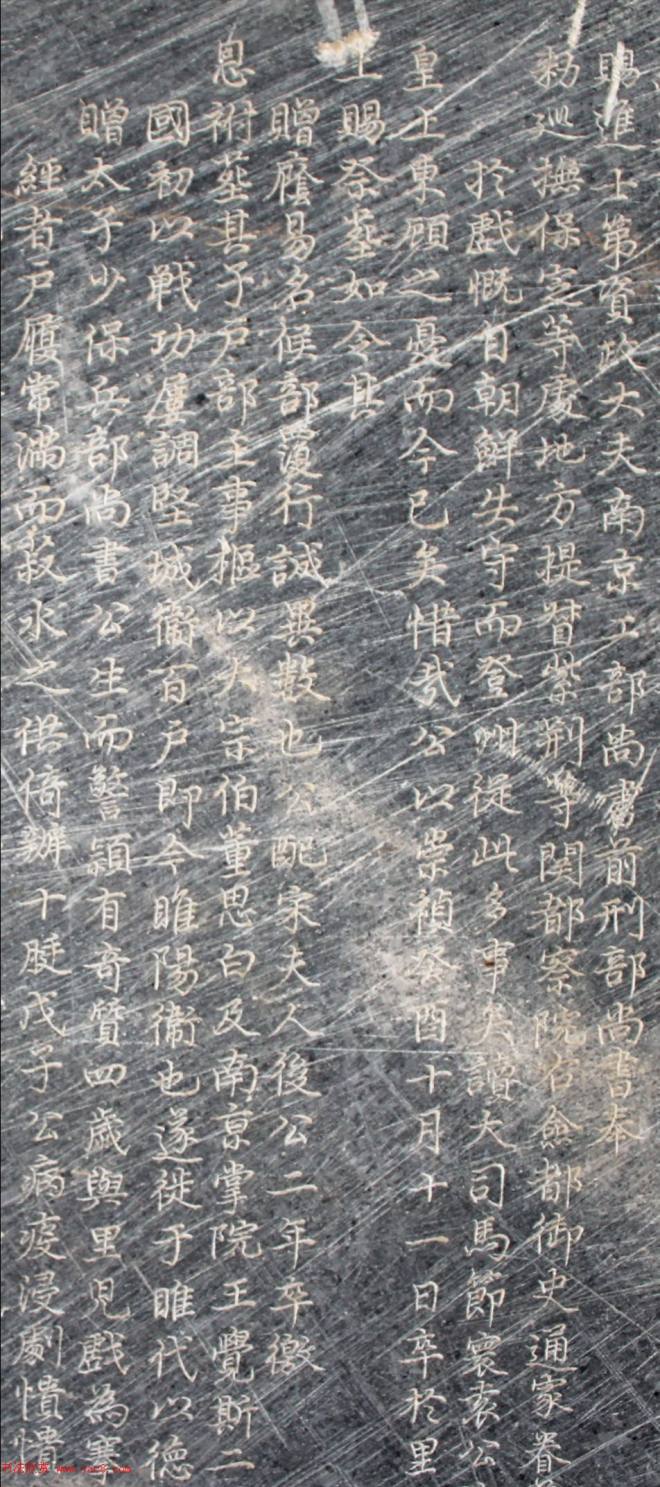 賜進士第資政大夫南京工部尚書前刑部尚書奉
勑巡撫保定等處地方提督紫荆等関都察院右僉都御史通家眷
於戲慨自朝鮮失守而登州從此多事矣讀大司馬節寰袁公
皇上東顧之憂而今已矣惜哉公以崇禎癸酉十月十一日卒於里
上賜祭塟如令甚
贈廕易名候部覆行誠異數也公配宋夫人後公二年卒徼
恩祔塟其子戸部主事樞以大宗伯董思白及南京掌院王覺斯二
國初以戰功屢調堅城衞百戸即今睢陽衞也遂徙于睢代以德
贈太子少保兵部尚書公生而警頴有奇質四歲與里児戲為寨
經者戸屨常滿而菽水之供倚辦十脡戊子公病疫浸劇憒憒
www.yac8.com